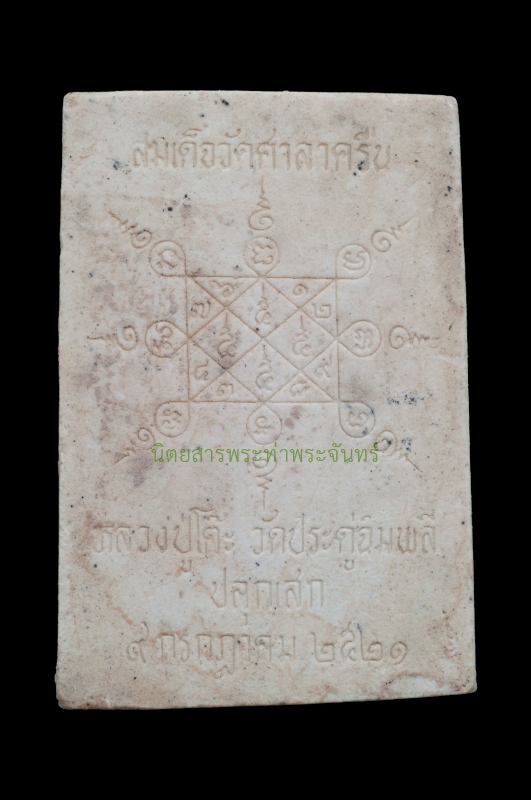 สมเด็จวัดศาลาครืน
๖ ๑
๗ ๕ ๒
๕ ๕
๔ ๕ ๙
๓ ๘
นิตยสารพระท่าพระจันทร์
หลวงปู่โต๊ะ วัดประดู่ฉิมพลี
ปลุกเสก
๙ กรกฎาคม ๒๕๒๑